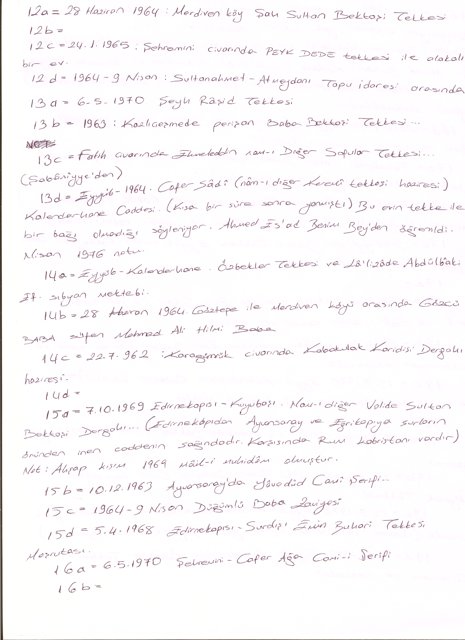 12a = 28 Haziran 1964 : Merdiven köy Şah Sultan Bektaşi Tekkesi
12b =
12c = 24.1.1965 : Şehremini civarında PEYK DEDE tekkesi ile alakalı
bir ev.
12d = 1964-9 Nisan : Sultanahmet - Atmeydanı Tapu idaresi arasında
13a = 6.5.1970 Şeyh Râşid Tekkesi
13b = 1963 : Kazlıçeşmede perişan Baba Bektaşi Tekkesi...
NOT:
13c = Fatih civarında nam-ı Diğer Sofular Tekkesi...
(Sabâniyye'den)
13d = Eyyüb-1964. Cafer Sâdi (nâm-ı diğer tekkesi haziresi)
Kalenderhane Caddesi (Kısa bir süre sonra yanmıştı) Bu evin tekke ile
bir bağı olmadığı söyleniyor. Ahmed Es'ad Benim Bey'den öğrenildi..
Nisan 1976 notu.
14a = Eyyüb-Kalenderhane. Özbekler Tekkesi ve Lâ'lizâde Abdülbâki
Ef. sıbyan mektebi.
14b = 28 Haziran 1964 Göztepe ile Merdiven köyü arasında Gözcü
BABA Mehmed Ali Hilmi Baba
14c = 22.7.962 : Karagümrük civarında Kabakulak Dergahı
haziresi.
14d =
15a = 7.10.1969 Edirnekapısı - Kuyubaşı. Nam-ı diğer Valde Sultan
Bektaşi Dergahı... (Edirnekapıdan Ayvansaray ve Eğrikapıya surların
önünden inen caddenin sağındadır. Karşısında Rum kabristanı vardır)
Not : Ahşap kısım 1969 olmuştur.
15b = 10.12.1963 Ayvansaray'da Yâvedüd Cami Şerifi..
15c = 1964-9 Nisan Düğümlü Baba Zaviyesi
15d = 5.4.1968 Edirnekapısı - Surdışı Emin Buhari Tekkesi
Meşrutası.
16a = 6.5.1970 Şehremini - Cafer Ağa Cami-i Şerifi
16b =